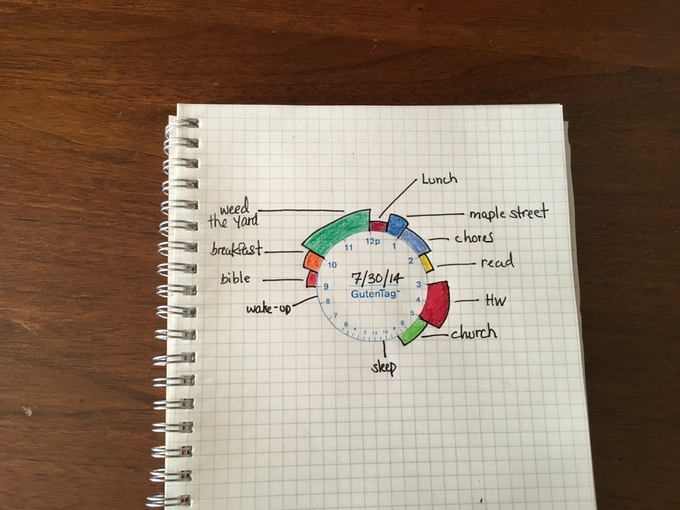 Lunch
weed
the yard
maple street
chores
breakfast
read
bible
wake-up
HW
church
sleep
7/30/14
GutenTag
12p
1
2
3
4
5
6
7
8
9
10
11